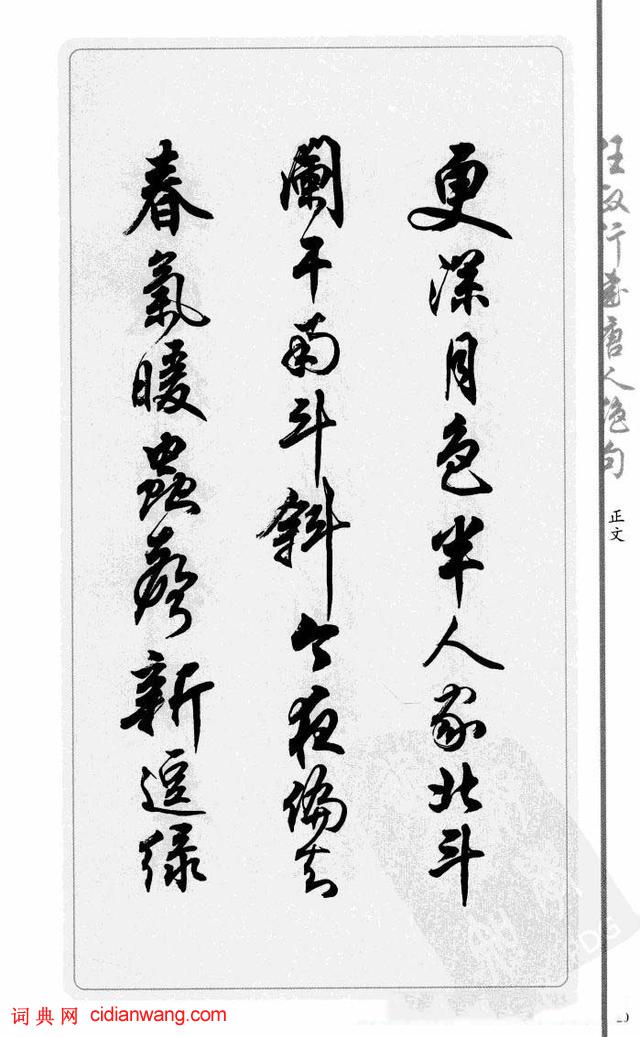 更深月色半人家北斗
闌干南斗斜今夜偏知
春氣暖蟲聲新逗緑
任政行書唐人絶句
正文
词典网 cidianwang.com